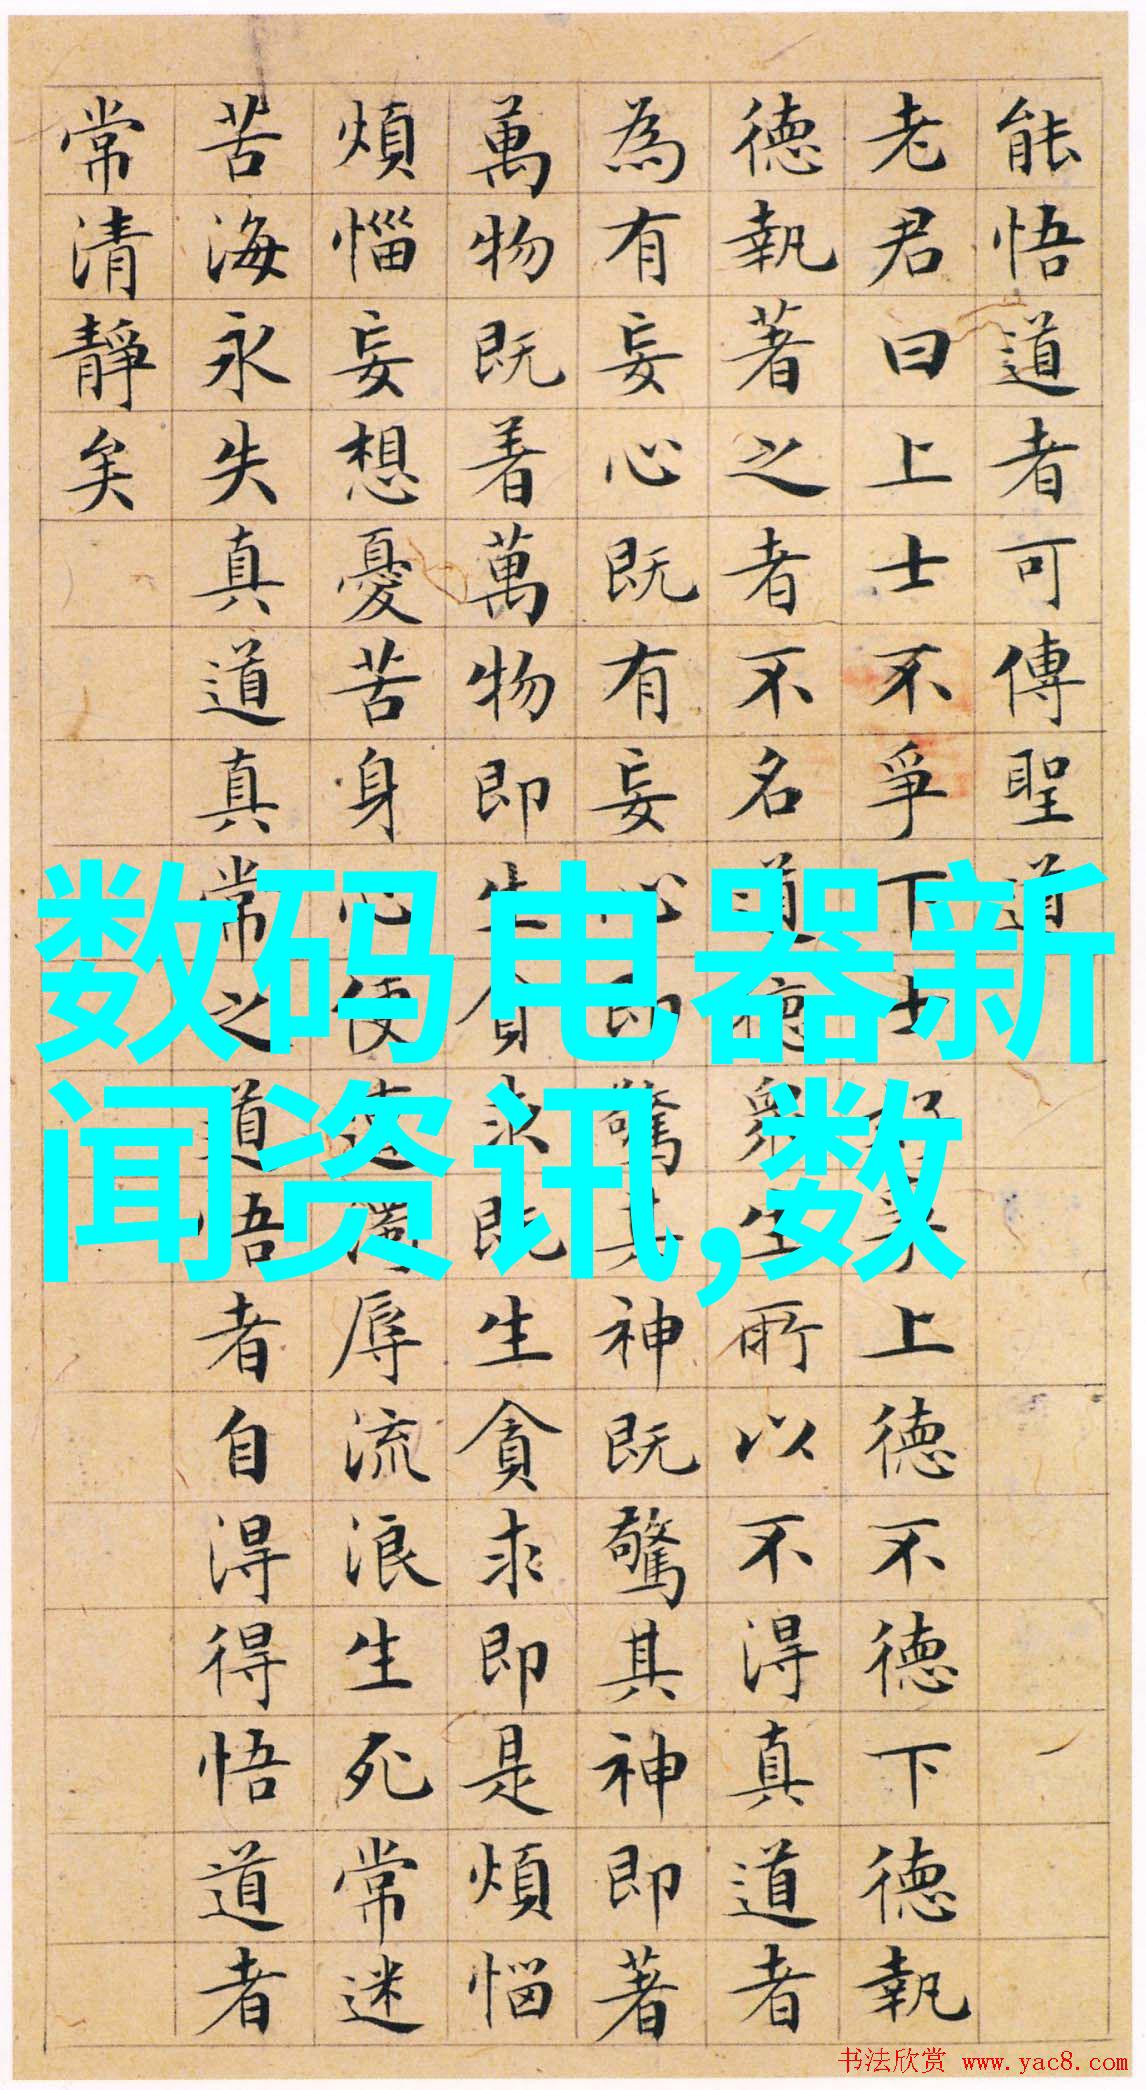 能悟道者可傳聖道
老君曰上士不爭下士好爭上德不德下德執
德執著之者不名道德眾生所以不得真道者
為有妄心既有妄心即驚其神既驚其神即著
萬物既着萬物即生貪求既生貪求即是煩惱
煩惱妄想憂苦身心便遭濁辱流浪生死常迷
苦海永失真道真常之道悟者自得得悟道者
常清靜矣
数码电器新
闻资讯,数
书法欣赏 www.yac8.com